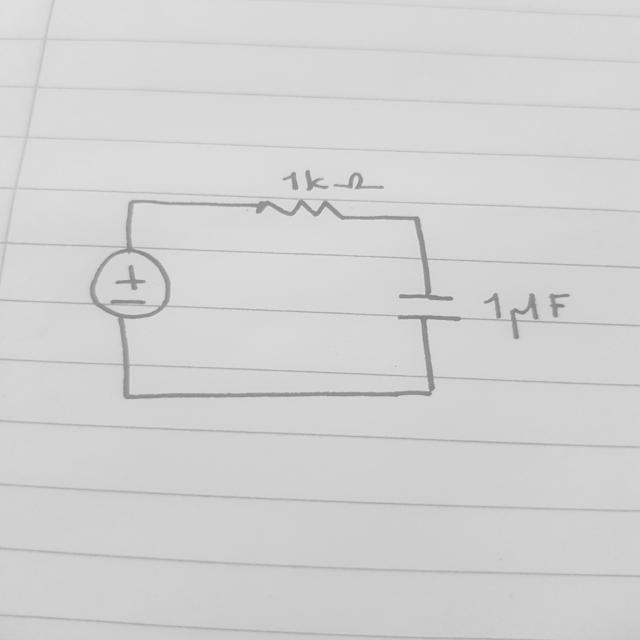 1kΩ
+
−
1μF